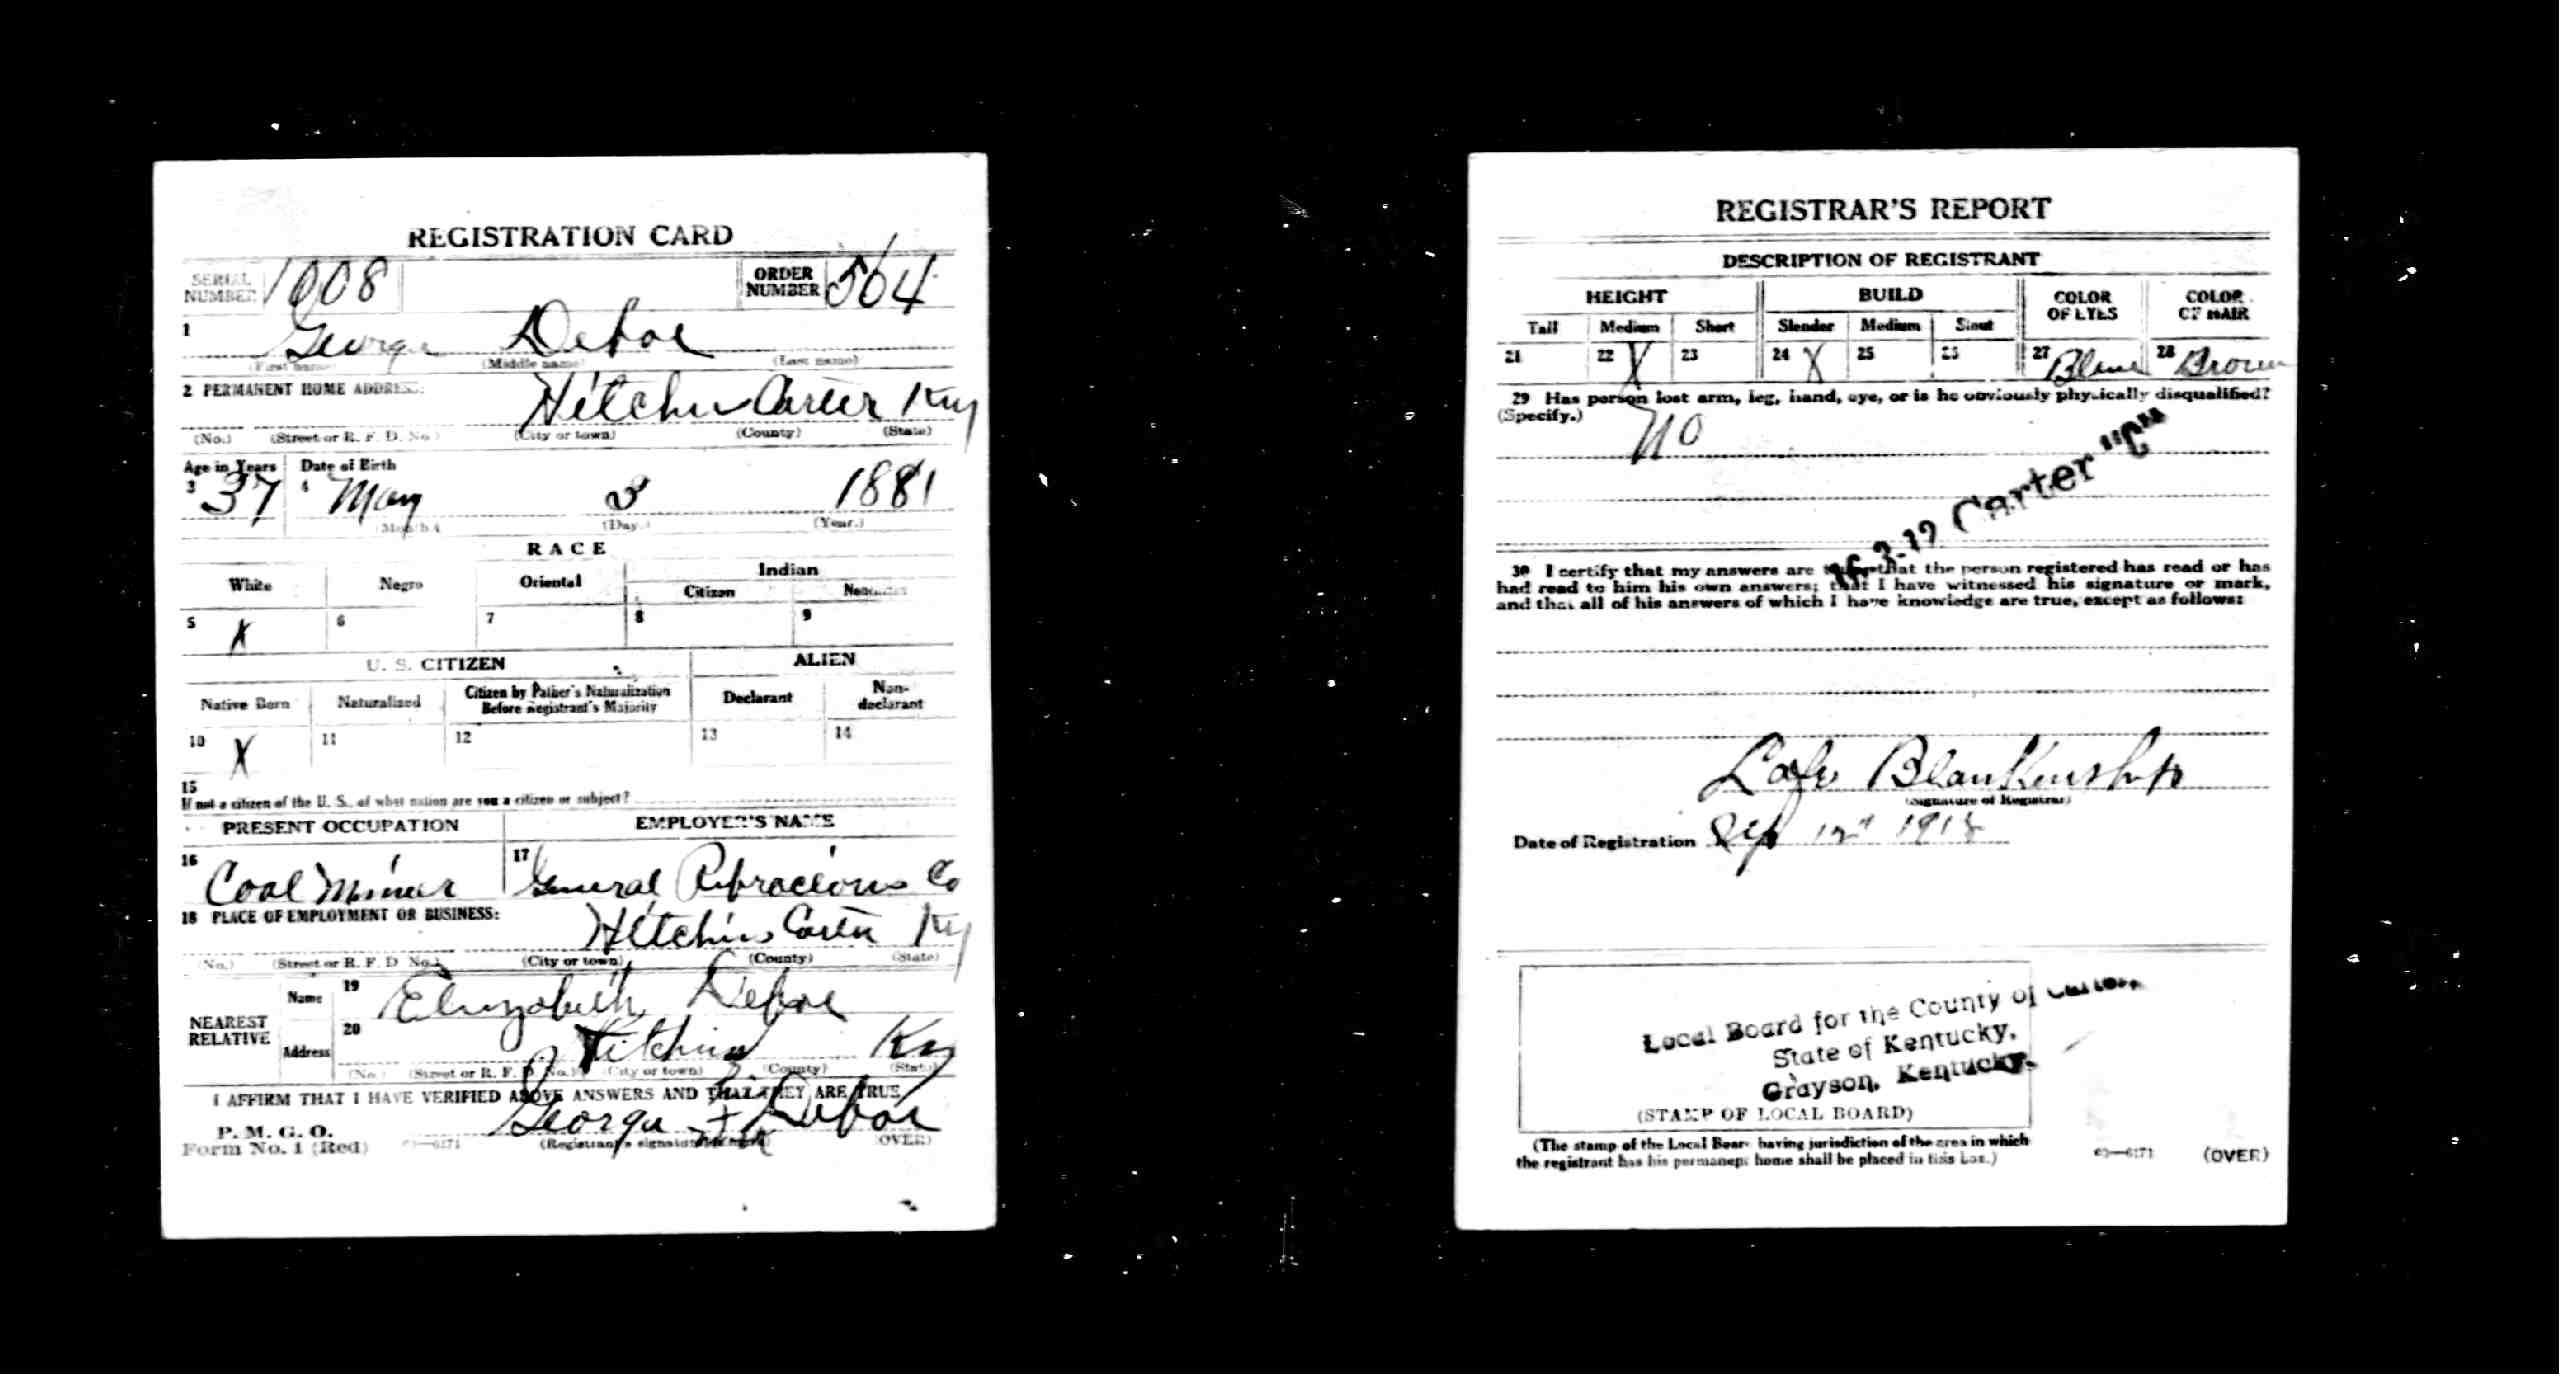 REGISTRATION CARD
SERIAL NUMBER 1008 ORDER NUMBER 564
1 George Deboe
(First name) (Middle name) (Last name)
2 PERMANENT HOME ADDRESS:
Hitchins Carter Ky
(No.) (Street or R. F. D. No.) (City or town) (County) (State)
Age in Years Date of Birth
3 37 4 May 3 1881
(Month.) (Day.) (Year.)
RACE
White Negro Oriental Indian
Citizen Noncitizen
5 X 6 7 8 9
U. S. CITIZEN ALIEN
Native Born Naturalized Citizen by Father's Naturalization Before Registrant's Majority Declarant Non-declarant
10 X 11 12 13 14
15
If not a citizen of the U. S., of what nation are you a citizen or subject?
PRESENT OCCUPATION EMPLOYER'S NAME
16 Coal Miner 17 General Refractories Co
18 PLACE OF EMPLOYMENT OR BUSINESS:
Hitchins Carter Ky
(No.) (Street or R. F. D. No.) (City or town) (County) (State)
NEAREST RELATIVE
Name 19 Elizabeth Deboe
Address 20 Hitchins Ky
(No.) (Street or R. F. D. No.) (City or town) (County) (State)
I AFFIRM THAT I HAVE VERIFIED ABOVE ANSWERS AND THAT THEY ARE TRUE
P. M. G. O.
Form No. 1 (Red) 03—6171 George + Deboe
(Registrant's signature or mark) (OVER)
REGISTRAR'S REPORT
DESCRIPTION OF REGISTRANT
HEIGHT BUILD COLOR OF EYES COLOR OF HAIR
Tall Medium Short Slender Medium Stout
21 22 X 23 24 X 25 26 27 Blue 28 Brown
29 Has person lost arm, leg, hand, eye, or is he obviously physically disqualified?
(Specify.)
No
16-3-19 Carter "C"
30 I certify that my answers are true; that the person registered has read or has
had read to him his own answers; that I have witnessed his signature or mark,
and that all of his answers of which I have knowledge are true, except as follows:
Blankenship
(Signature of Registrar)
Date of Registration Sep 12" 1918
Local Board for the County of Carter,
State of Kentucky,
Grayson, Kentucky.
(STAMP OF LOCAL BOARD)
(The stamp of the Local Board having jurisdiction of the area in which
the registrant has his permanent home shall be placed in this box.)
03—6171 (OVER)